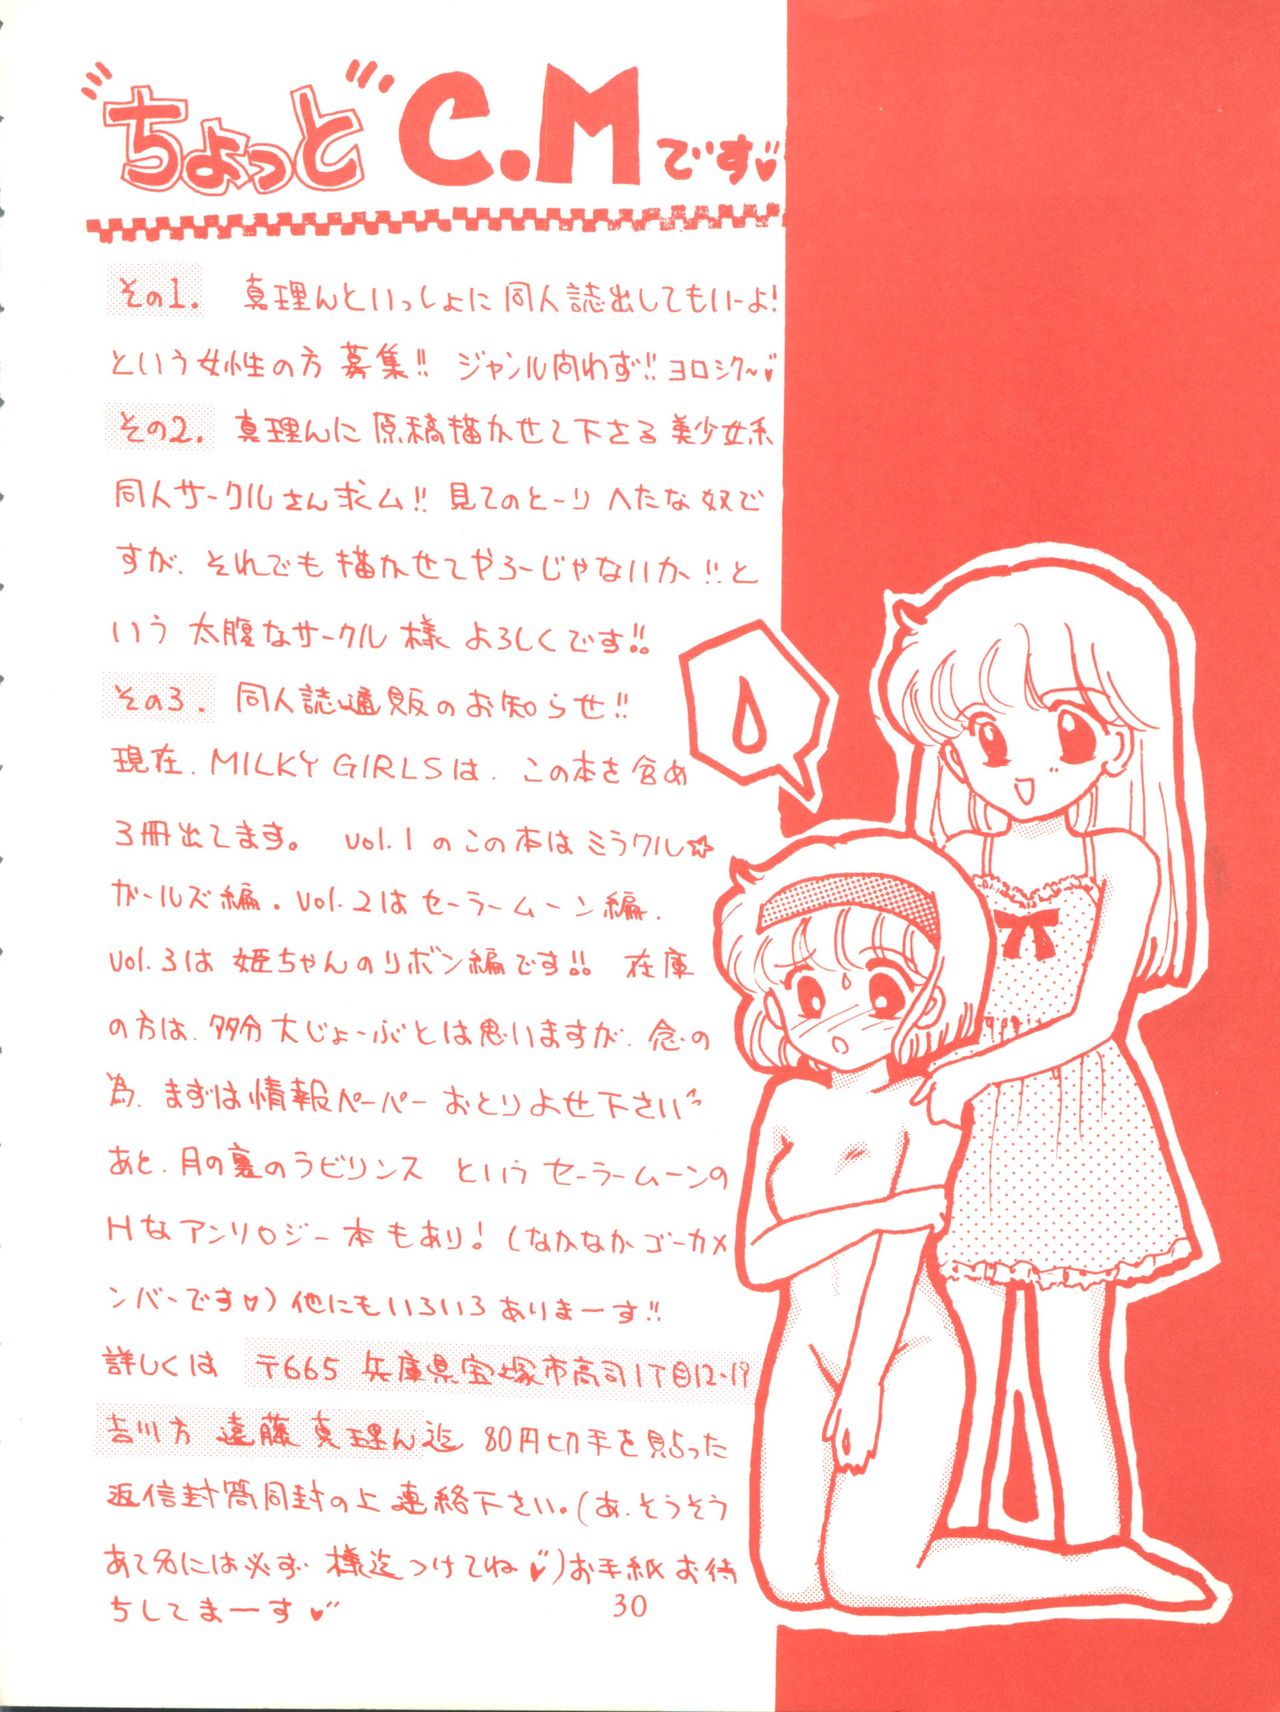 "ちょっと"C.Mです
その1. 真理んといっしょに同人誌出してもいーよ!
という女性の方募集!! ジャンル問わず!!ヨロシク~
その2. 真理んに原稿描かせて下さる美少女系
同人サークルさん求ム!! 見てのとーりへたな奴で
すが、それでも描かせてやろーじゃないか!!と
いう太腹なサークル様よろしくです!!
その3. 同人誌通販のお知らせ!!
現在、MILKY GIRLSは、この本を含め
3冊出てます。 vol.1のこの本はミラクル☆
ガールズ編。vol.2はセーラームーン編、
vol.3は姫ちゃんのリボン編です!! 在庫
の方は、多分大じょーぶとは思いますが、念の
為、まずは情報ペーパーおとりよせ下さい
あと、月の裏のラビリンス というセーラームーンの
Hなアンソロジー本もあり!(なかなかゴーカメ
ンバーです♡)他にもいろいろありまーす!!
詳しくは 〒665 兵庫県宝塚市高司1丁目12-19
吉川方 遠藤真理ん迄 80円切手を貼った
返信封筒同封の上連絡下さい。(あ、そうそう
あて名には必ず 様迄つけてね♡)お手紙お待
ちしてまーす♡
30